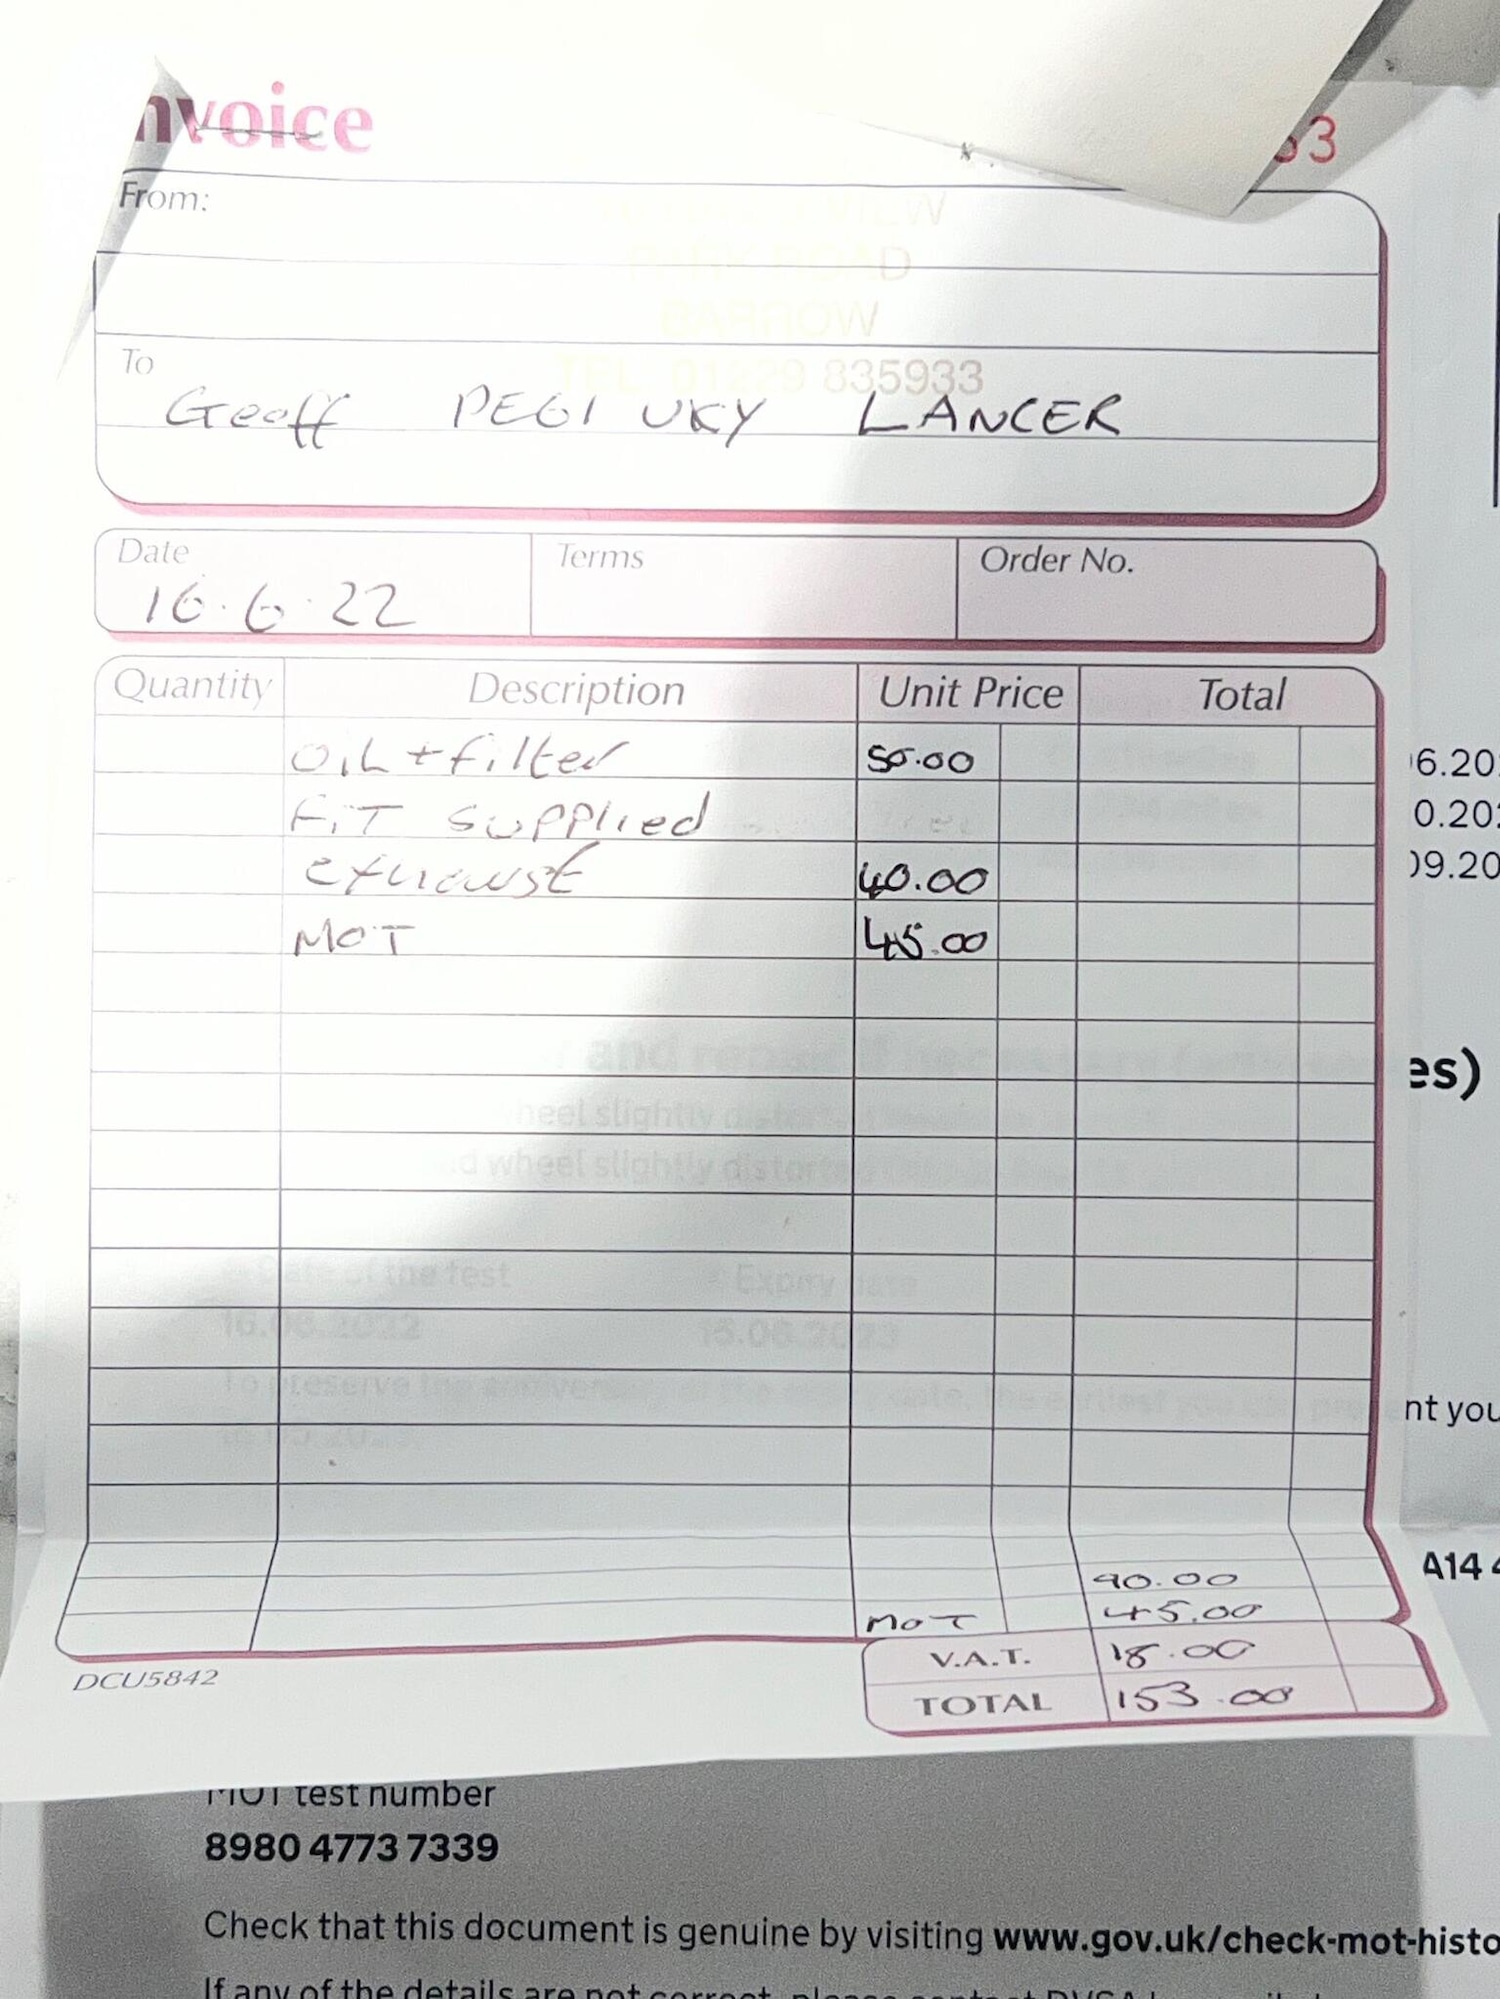 nvoice
53
From:
VIEW
PARK ROAD
BARROW
TEL. 01229 835933
To
Geoff PEGI UKY LANCER
Date
Terms
Order No.
16.6.22
Quantity Description Unit Price Total
OiL + filter 50.00
FiT supplied
exhaust 40.00
MOT 45.00
and
heel slightly
d wheel slightly distorted
Date of the test Expiry date
16.06.2022 15.06.2023
90.00
MOT 45.00
V.A.T. 18.00
TOTAL 153.00
DCU5842
6.20
0.20
09.20
es)
nt you
A14 4
MOT test number
8980 4773 7339
Check that this document is genuine by visiting www.gov.uk/check-mot-histo
If any of the details are not correct, please contact DVSA